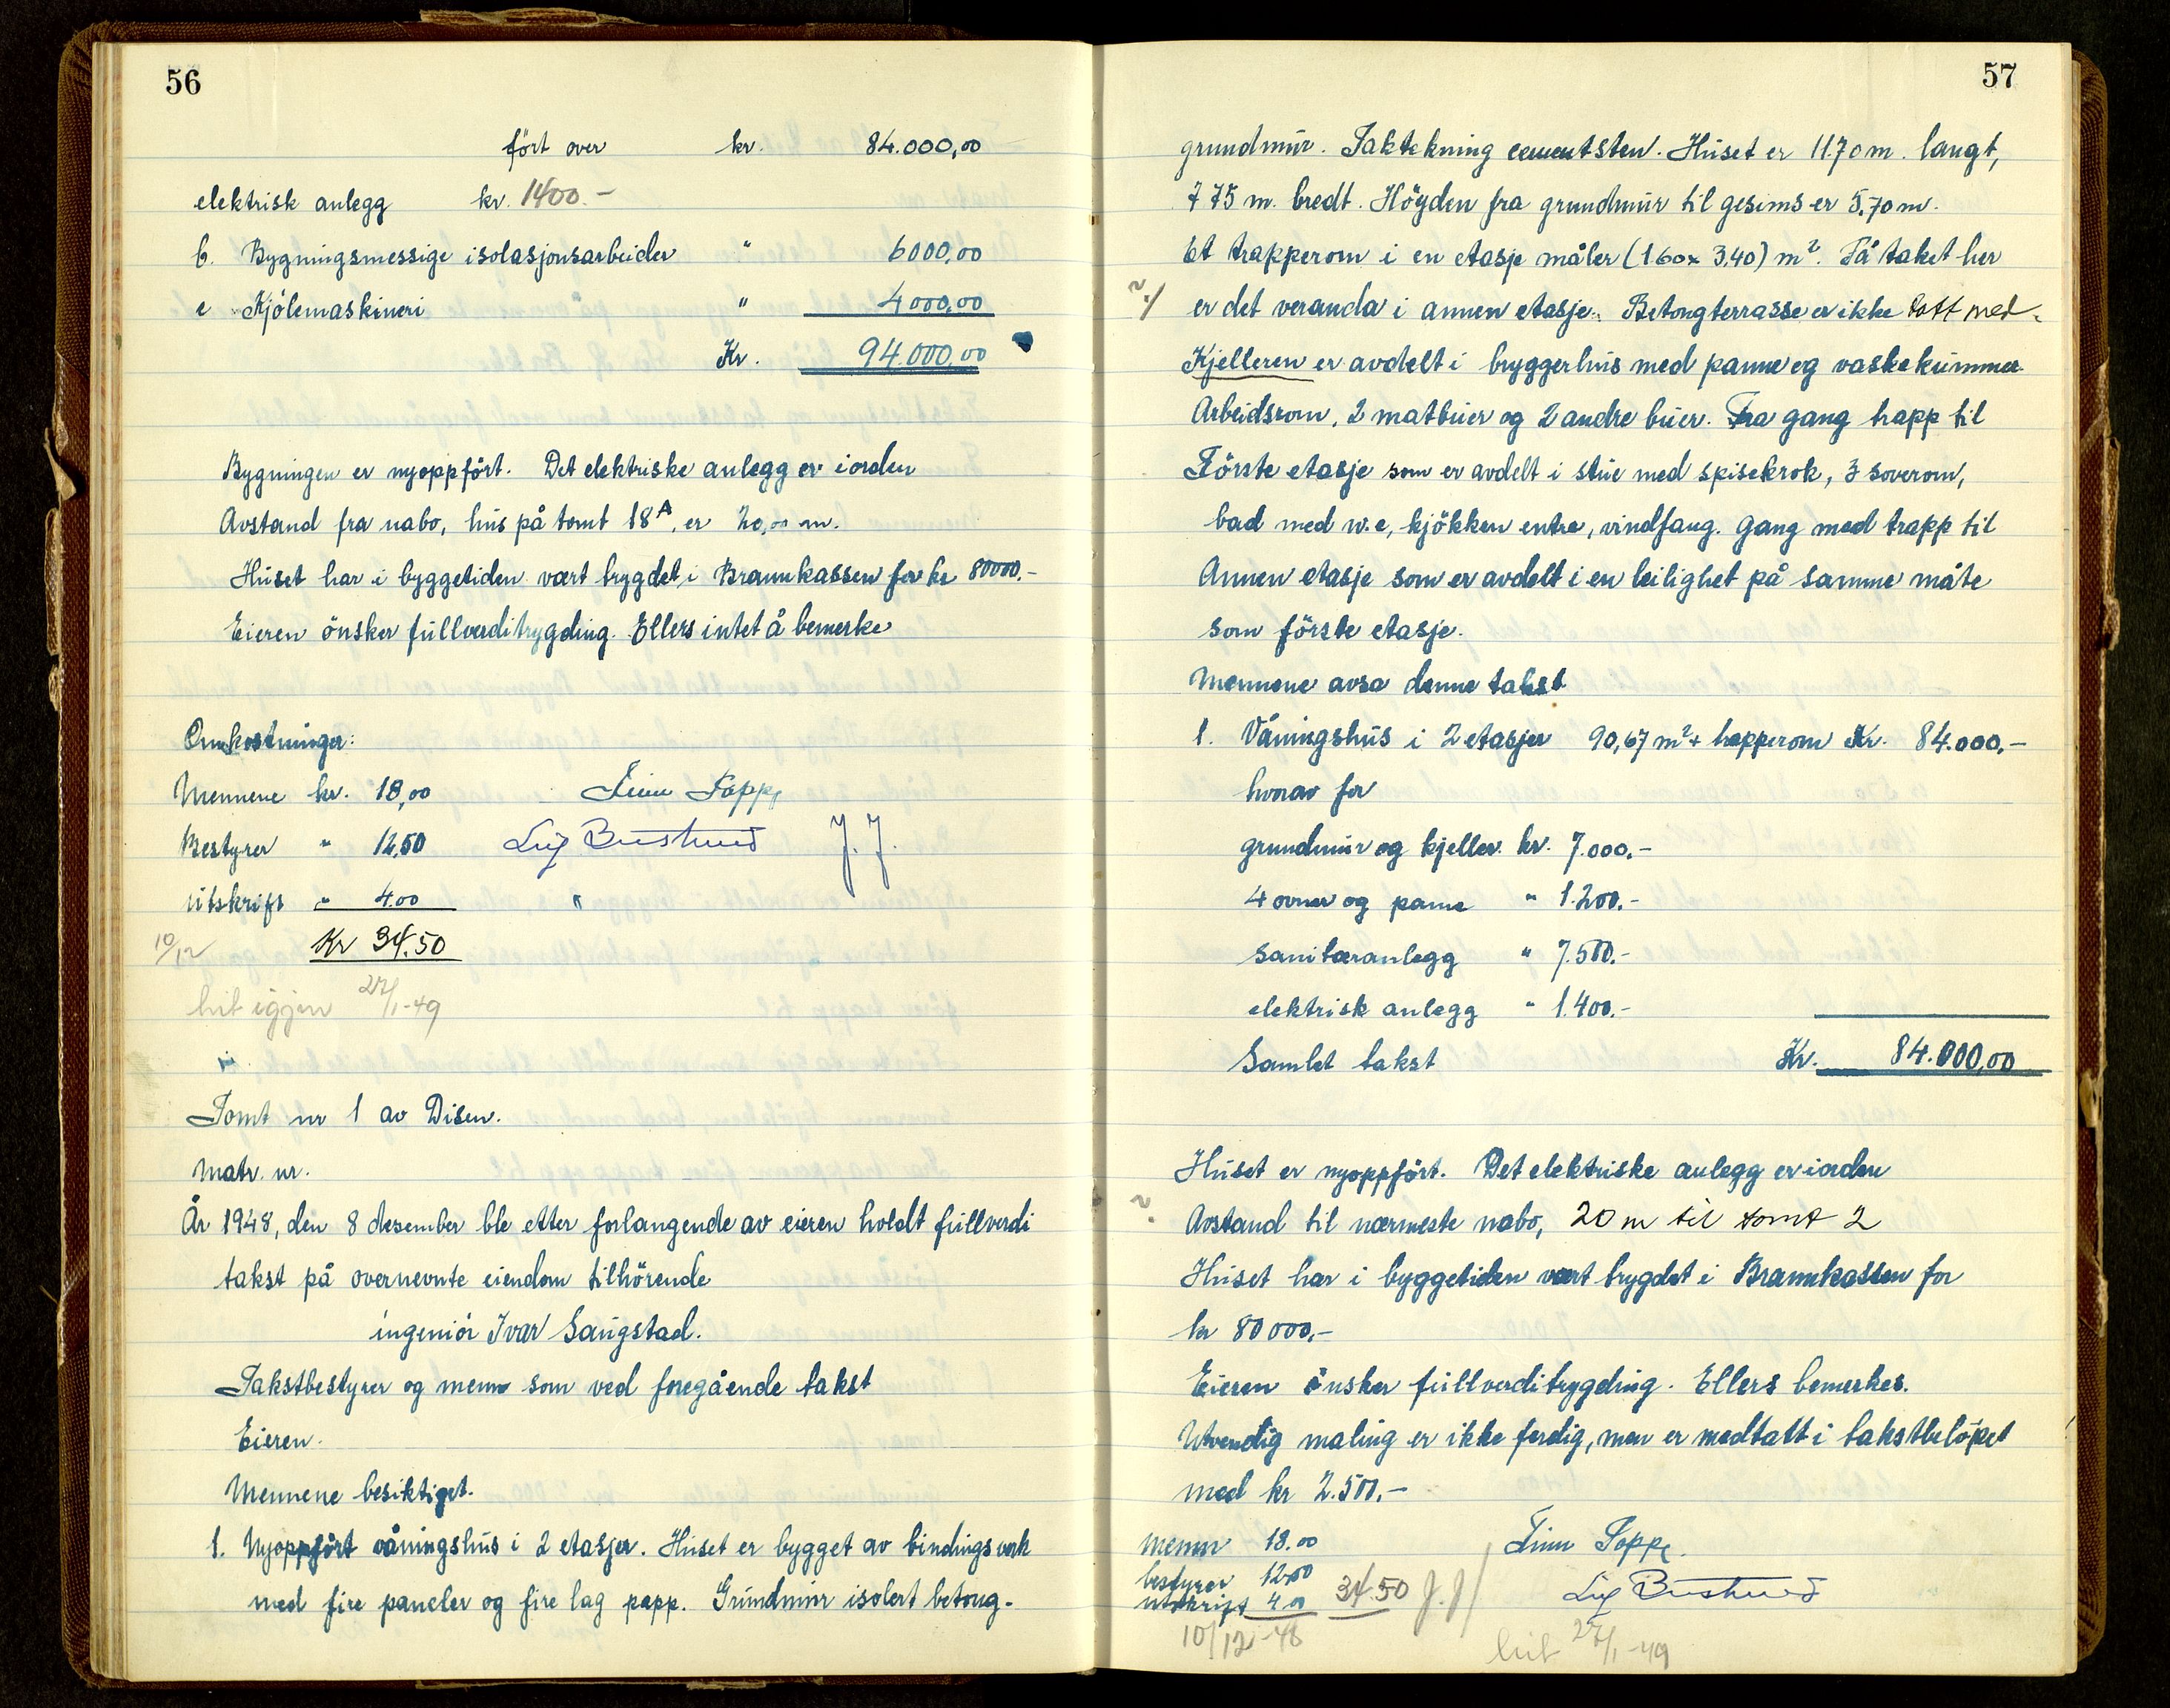 56
fört over kr. 84.000,00
elektrisk anlegg kr. 1400.-
b. Bygningsmessige isolasjonsarbeider " 6000,00
c Kjölemaskineri " 4000,00
Kr. 94.000,00
Bygningen er nyoppfört. Det elektriske anlegg er iorden
Avstand fra nabo, hus på tomt 18A, er 20,00 m.
Huset har i byggetiden vært trygdet i Brannkassen for kr 80000.-
Eieren önsker fullverditrygding. Ellers intet å bemerke
Omkostninger:
Mennene kr. 18,00
Bestyrer " 12,50 J.J.
utskrift " 4.00 "
10/12 Kr 34.50
hit igjen 27/1-49
Tomt nr 1 av Disen.
Matr. nr.
År 1948, den 8 desember ble etter forlangende av eieren holdt fullverdi
takst på overnevnte eiendom tilhörende
ingeniör Ivar Saugstad.
Takstbestyrer og menn som ved foregående takst
Eieren.
Mennene besiktiget.
1. Nyoppfört våningshus i 2 etasjer. Huset er bygget av bindingsverk
med fire paneler og fire lag papp. Grundmur isolert betong-
57
grundmur. Taktekning cementsten. Huset er 11.70 m. langt,
7 75 m. bredt. Höyden fra grundmur til gesims er 5,70 m.
Et trapperom i en etasje måler (1.60 x 3.40) m². På taket her
er det veranda i annen etasje. Betongterrasse er ikke tatt med.
Kjelleren er avdelt i bryggerhus med panne og vaskekummer
Arbeidsrom, 2 matbuer og 2 andre buer. Fra gang trapp til
Förste etasje som er avdelt i stue med spisekrok, 3 soverom,
bad med w.c, kjökken entre, vindfang. Gang med trapp til
Annen etasje som er avdelt i en leilighet på samme måte
som förste etasje.
Mennene avsa denne takst
1. Våningshus i 2 etasjer 90,67 m² + trapperom Kr. 84.000,-
hvorav for
grundmur og kjeller kr. 7.000.-
4 ovner og panne " 1.200.-
sanitæranlegg " 7.500.-
elektrisk anlegg " 1.400.-
Samlet takst Kr. 84.000,00
Huset er nyoppfört. Det elektriske anlegg er iorden
Avstand til nærmeste nabo, 20 m til tomt 2
Huset har i byggetiden vært trygdet i Brannkassen for
kr 80000,-
Eieren önsker fullverditrygding. Ellers bemerkes.
Utvendig maling er ikke ferdig, men er medtatt i takstbelöpet
med kr 2.500.-
menn 18.00
bestyrer 12.50
utskrift 4 00 34.50 J.J
10/12-48 hit 27/1-49